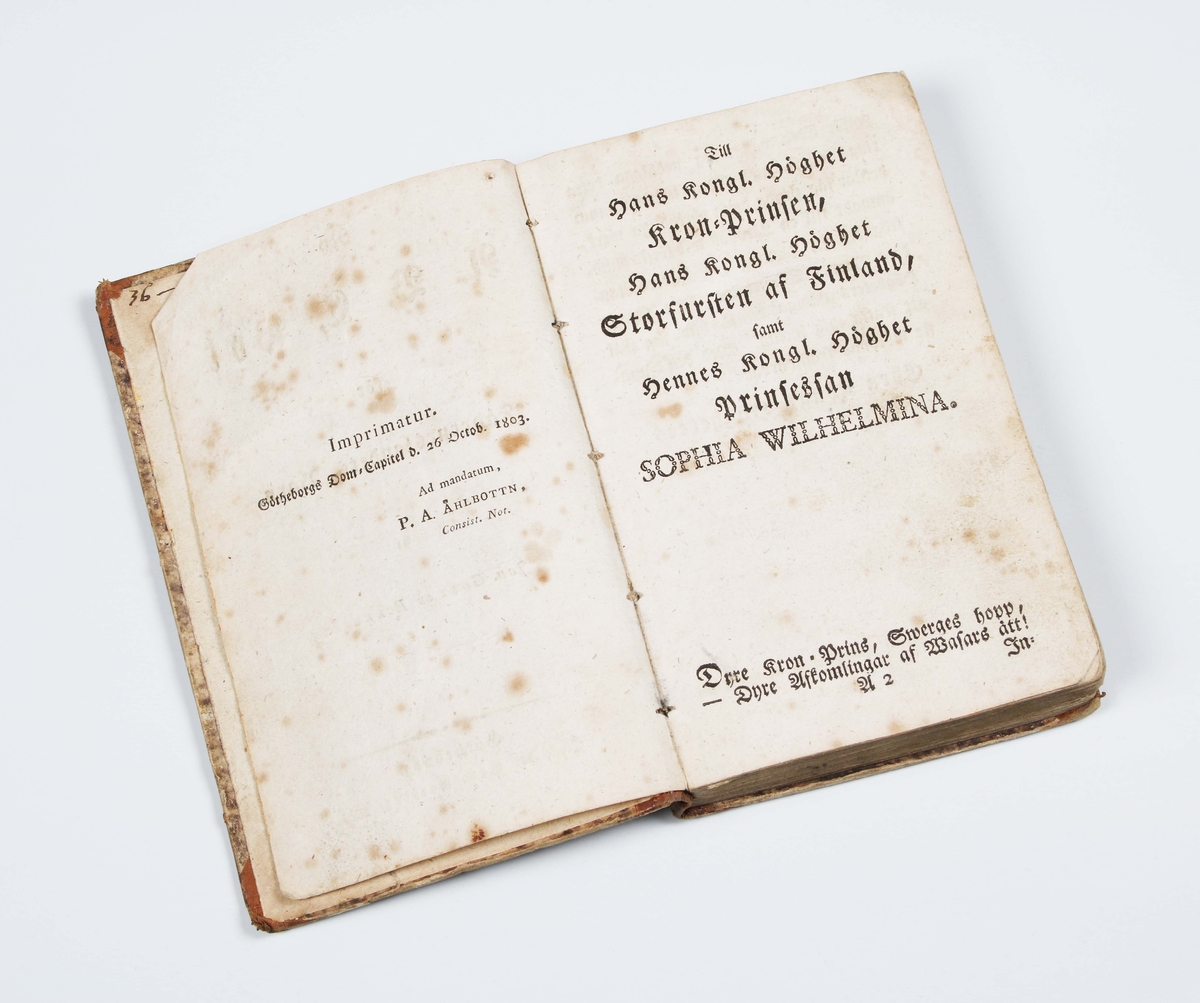 36 —
Imprimatur.
Götheborgs Dom-Capitel d. 26 Octob. 1803.
Ad mandatum,
P. A. ÅHLBOTTN,
Consist. Not.
Till
Hans Kongl. Höghet
Kron-Prinsen,
Hans Kongl. Höghet
Storfursten af Finland,
samt
Hennes Kongl. Höghet
Prinsessan
SOPHIA WILHELMINA.
Dyre Kron-Prins, Swerges hopp,
— Dyre Afkomlingar af Wasars ätt!
In-
A 2